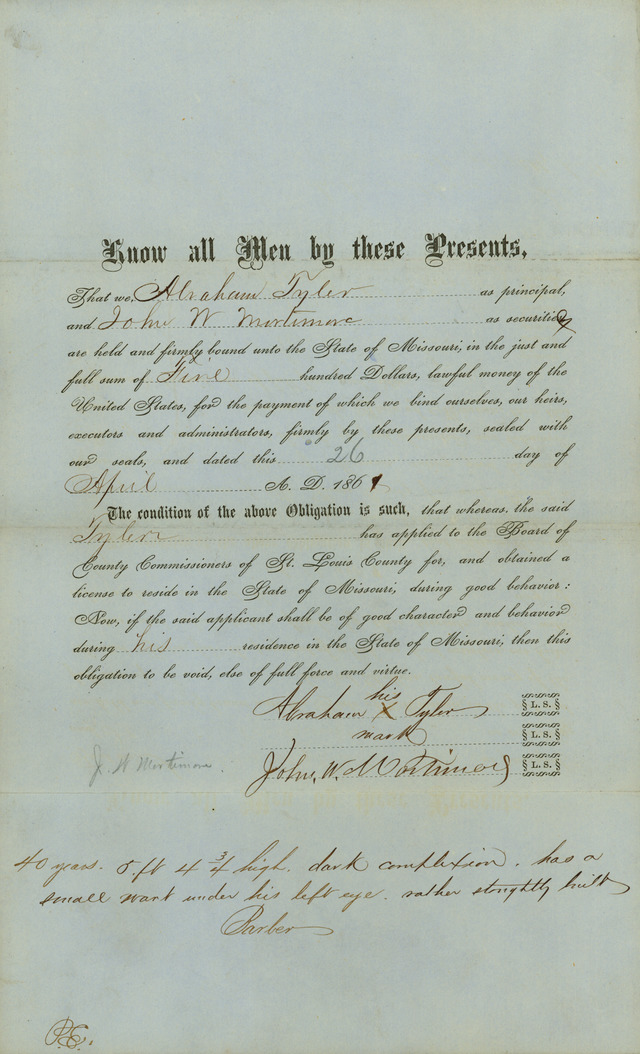 Know all Men by these Presents,
That we, Abraham Tyler as principal,
and John W Mortimore as securities
are held and firmly bound unto the State of Missouri, in the just and
full sum of Five hundred Dollars, lawful money of the
United States, for the payment of which we bind ourselves, our heirs,
executors and administrators, firmly by these presents, sealed with
our seals, and dated this 26 day of
April A. D. 1861
The condition of the above Obligation is such, that whereas, the said
Tyler has applied to the Board of
County Commissioners of St. Louis County for, and obtained a
license to reside in the State of Missouri, during good behavior:
Now, if the said applicant shall be of good character and behavior
during his residence in the State of Missouri, then this
obligation to be void, else of full force and virtue.
his
Abraham X Tyler § L. S. §
mark § L. S. §
J. W Mortimore.
John. W. Mortimore § L. S. §
40 years. 5. ft 4 3/4 high. dark complexion. has a
small wart under his left eye. rather built
Barber
P.E.